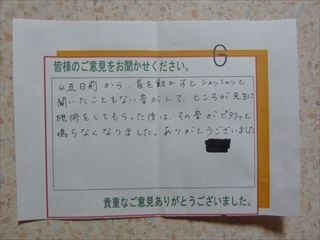 G
皆様のご意見をお聞かせください。
4五日前から、首を動かすとシュッシュッと
聞いたこともない音がして、ところが先生に
施術をしてもらった後は、その音がピタリッと
鳴らなくなりました。ありがとうございました
貴重なご意見ありがとうございました。